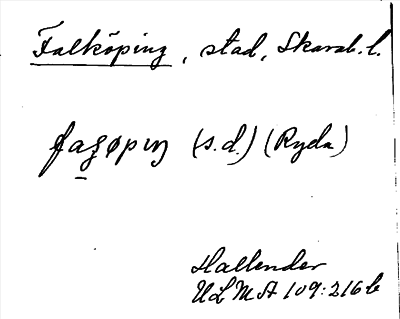 Falköping, stad, Skarab. l.
faʒøpıŋ (s.d.) (Ryda)
Hallender
ULMA 109:216 b